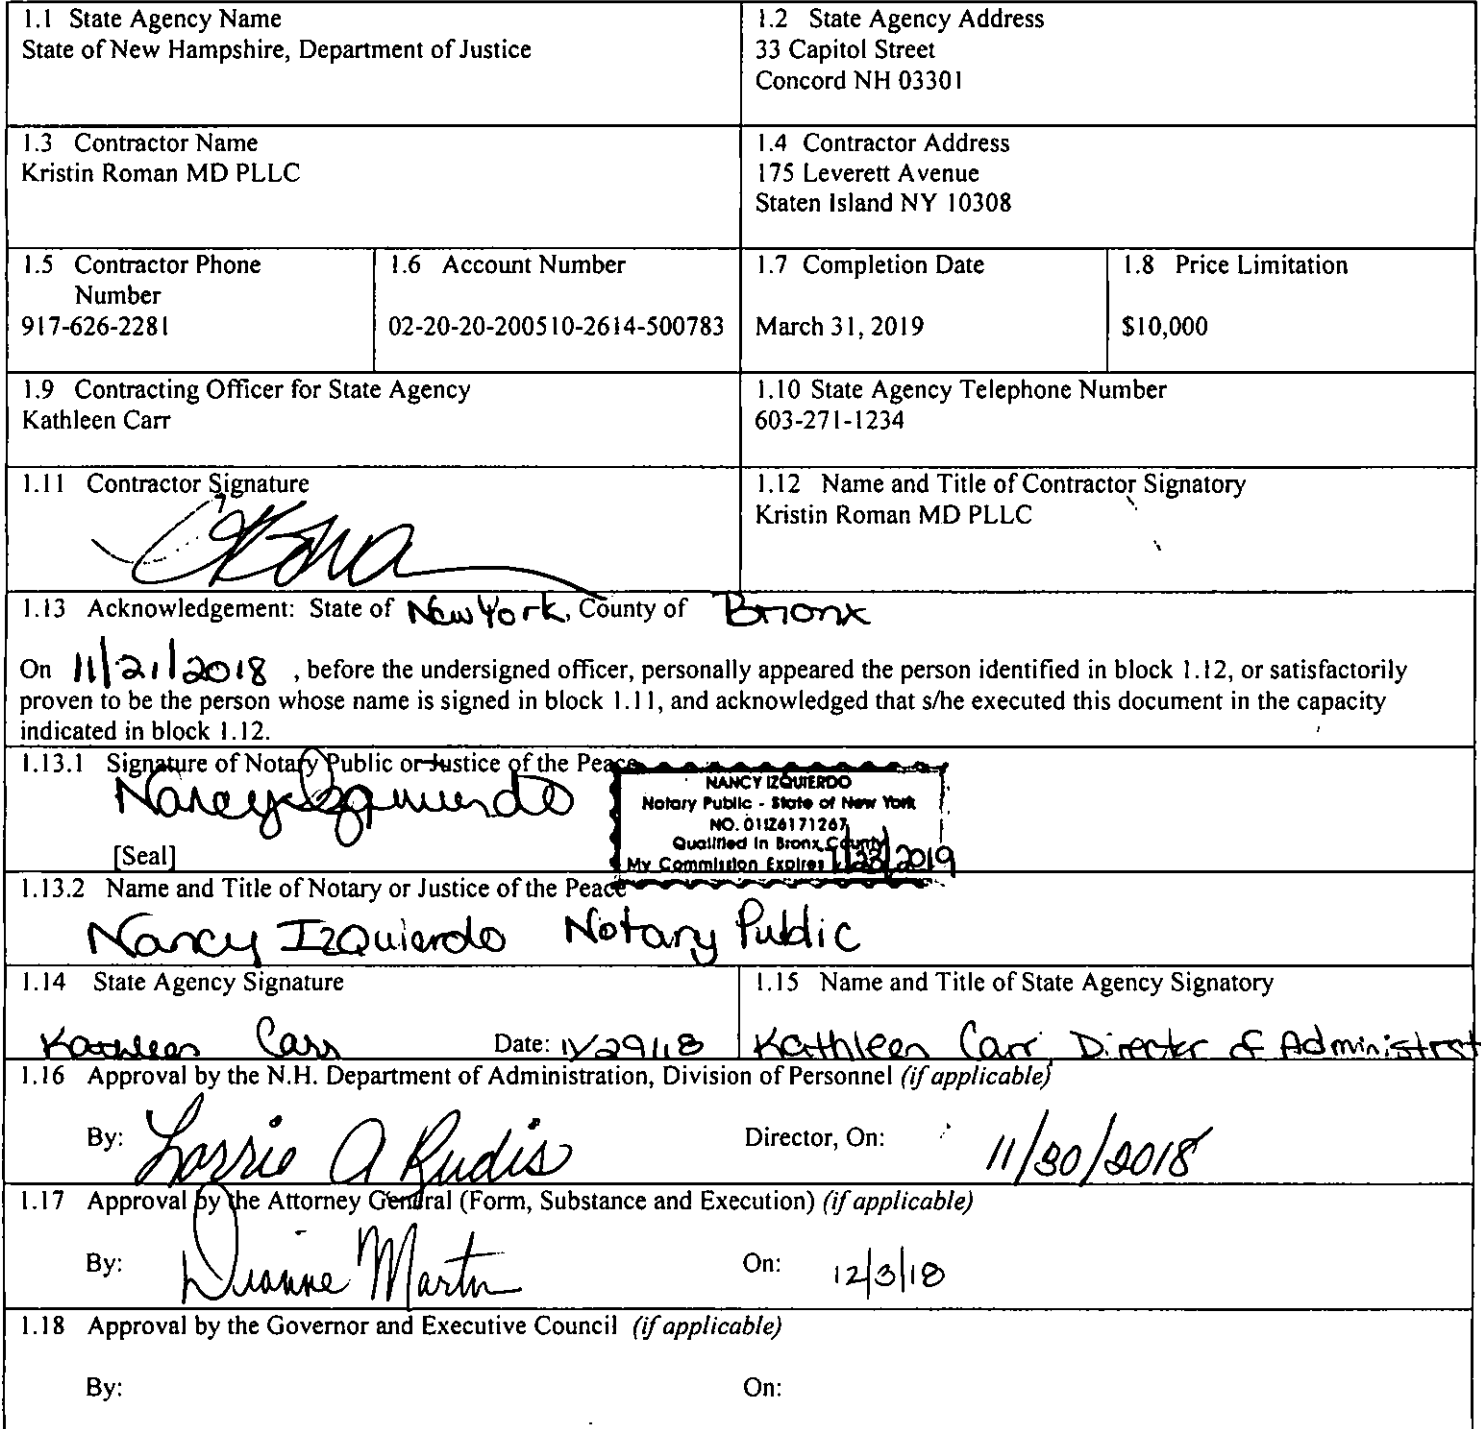 1.1 State Agency Name
State of New Hampshire, Department of Justice
1.2 State Agency Address
33 Capitol Street
Concord NH 03301
1.3 Contractor Name
Kristin Roman MD PLLC
1.4 Contractor Address
175 Leverett Avenue
Staten Island NY 10308
1.5 Contractor Phone
Number
917-626-2281
1.6 Account Number
02-20-20-200510-2614-500783
1.7 Completion Date
March 31, 2019
1.8 Price Limitation
$10,000
1.9 Contracting Officer for State Agency
Kathleen Carr
1.10 State Agency Telephone Number
603-271-1234
1.11 Contractor Signature
1.12 Name and Title of Contractor Signatory
Kristin Roman MD PLLC
1.13 Acknowledgement: State of New York, County of Bronx
On 11/21/2018 , before the undersigned officer, personally appeared the person identified in block 1.12, or satisfactorily
proven to be the person whose name is signed in block 1.11, and acknowledged that s/he executed this document in the capacity
indicated in block 1.12.
1.13.1 Signature of Notary Public or Justice of the Peace
Nancy Izquierdo
[Seal]
NANCY IZQUIERDO
Notary Public - State of New York
NO. 01IZ6171267
Qualified in Bronx County
My Commission Expires 7/23/2019
1.13.2 Name and Title of Notary or Justice of the Peace
Nancy IzQuierdo Notary Public
1.14 State Agency Signature
Kathleen Carr Date: 11/29/18
1.15 Name and Title of State Agency Signatory
Kathleen Carr Director of Administrat
1.16 Approval by the N.H. Department of Administration, Division of Personnel (if applicable)
By: Lorrie A Rudis Director, On: 11/30/2018
1.17 Approval by the Attorney General (Form, Substance and Execution) (if applicable)
By: Dianne Martin On: 12/3/18
1.18 Approval by the Governor and Executive Council (if applicable)
By: On: